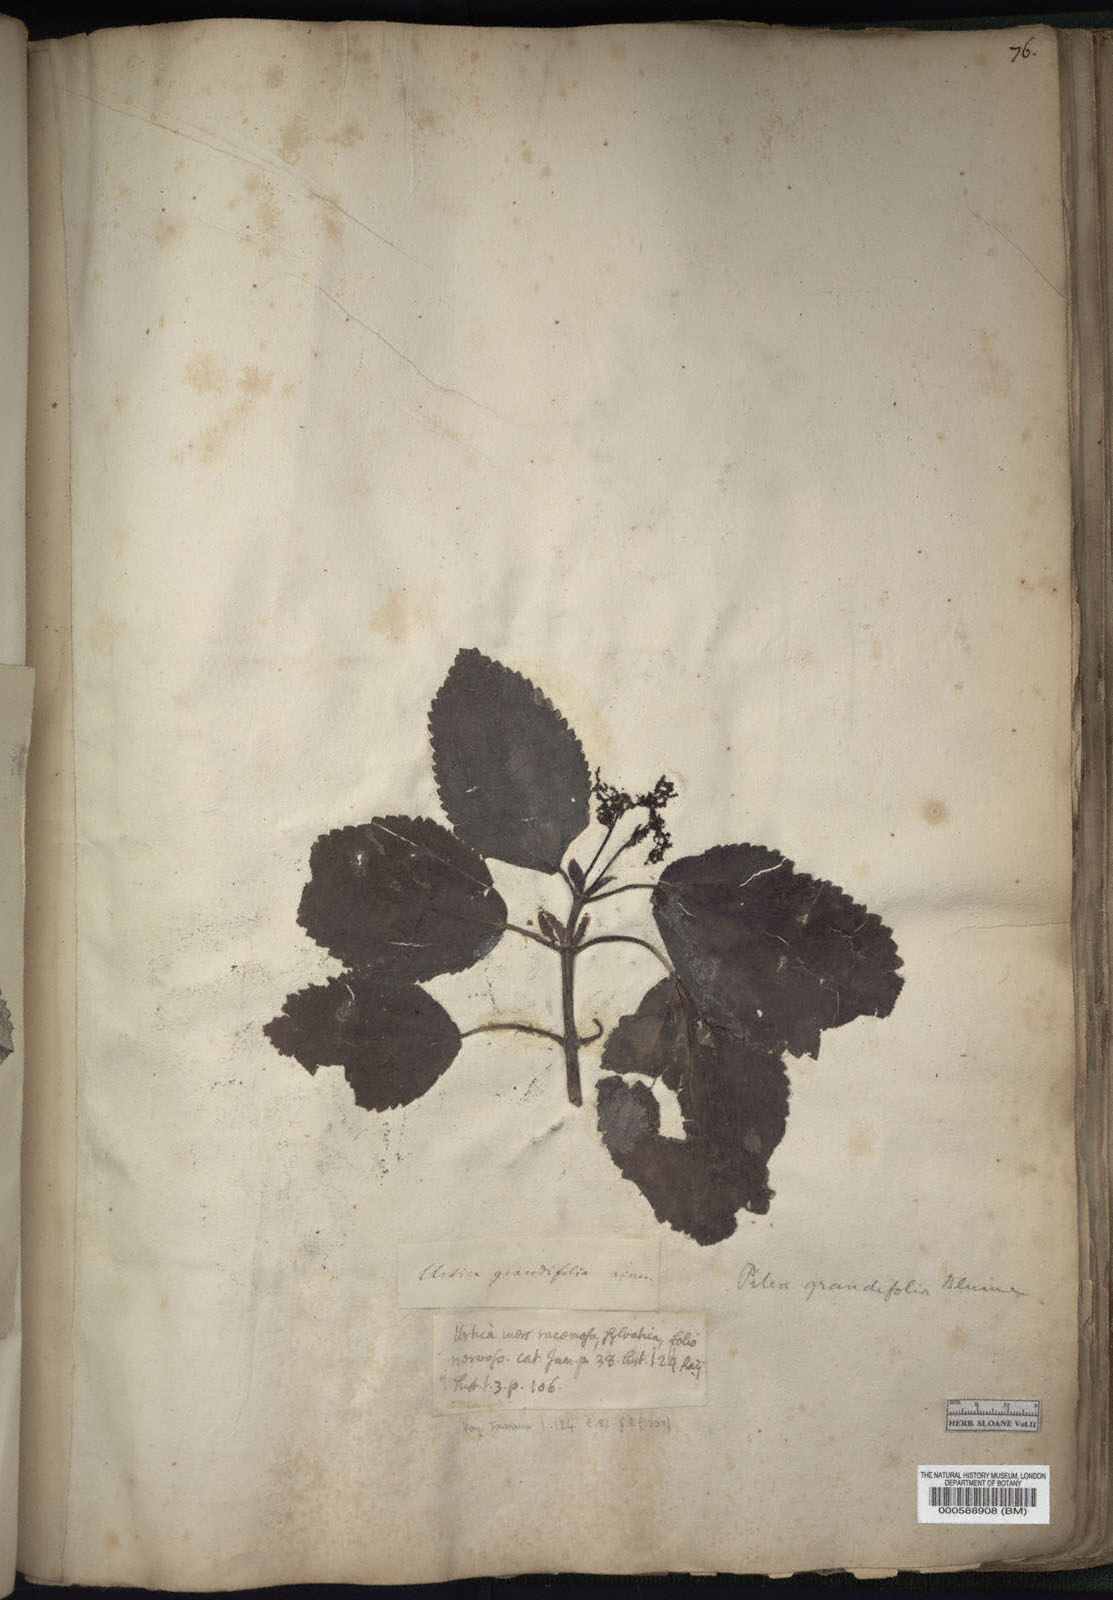 76.
Urtica grandifolia Linn.
Pilea grandifolia Blume
Urtica iners racemosa, sylvatica, folio
nervoso. cat. Jam. p. 38. hist. 124. Raij
hist. t. 3. p. 106.
Voy. Jamaica 1. 124 t. 83. f. 2 (1707)
HERB. SLOANE Vol. II
THE NATURAL HISTORY MUSEUM, LONDON
DEPARTMENT OF BOTANY
000588908 (BM)